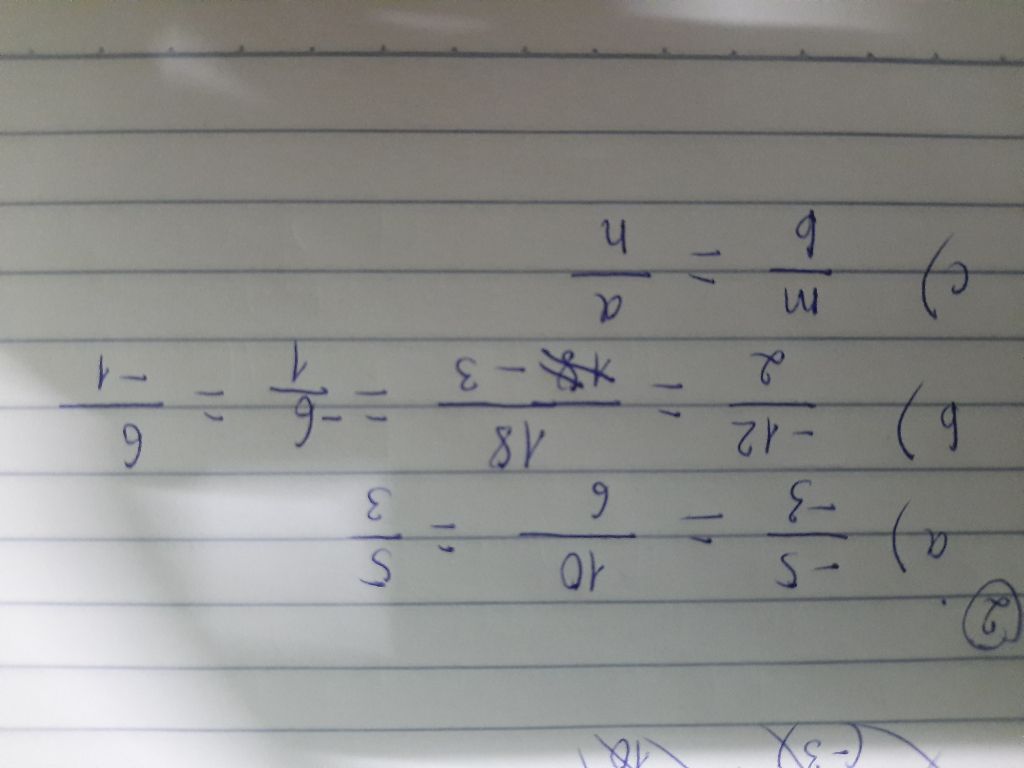 ② .
a) -5/-3 = 10/6 = 5/3
b) -12/2 = 18/-3 = -6/1 = 6/-1
c) m/b = a/n